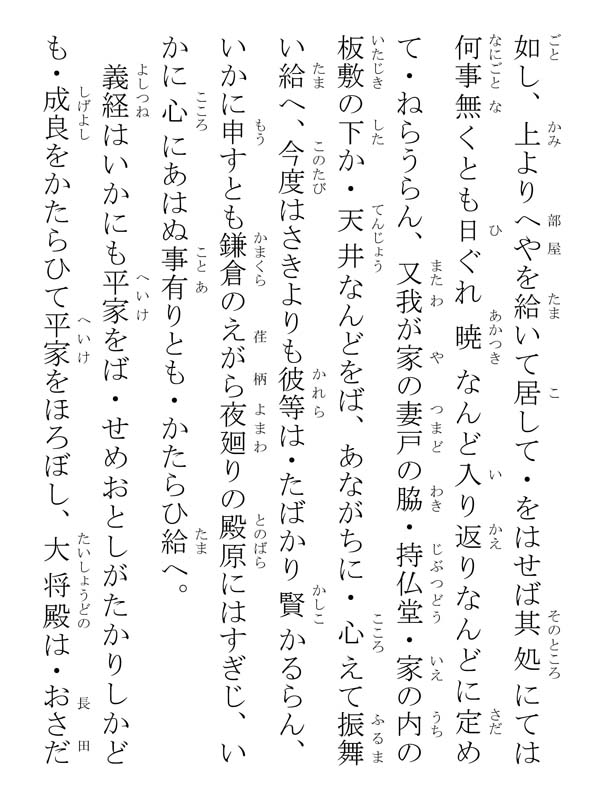 如し、上よりへやを給いて居して・をはせば其処にては
何事無くとも日ぐれ暁なんど入り返りなんどに定め
て・ねらうらん、又我が家の妻戸の脇・持仏堂・家の内の
板敷の下か・天井なんどをば、あながちに・心えて振舞
い給へ、今度はさきよりも彼等は・たばかり賢かるらん、
いかに申すとも鎌倉のえがら夜廻りの殿原にはすぎじ、い
かに心にあはぬ事有りとも・かたらひ給へ。
義経はいかにも平家をば・せめおとしがたかりしかど
も・成良をかたらひて平家をほろぼし、大将殿は・おさだ